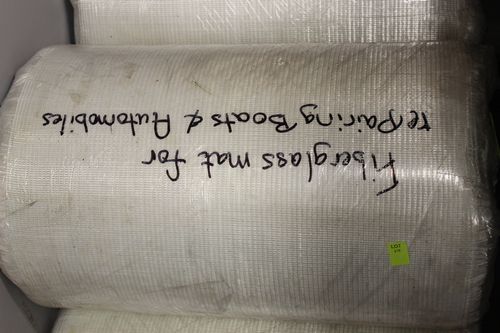 Fiberglass mat for
rePairing Boats & Automobiles
LOT